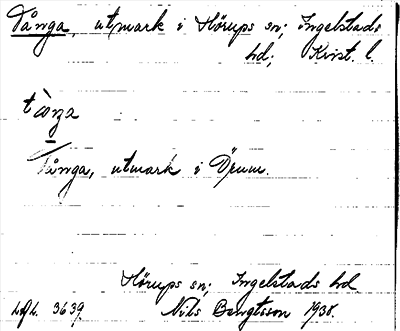 Tånga, utmark i Hörups sn; Ingelstads
hd; Krist. l.
Tånga, utmark i Örum.
Hörups sn; Ingelstads hd
3639 Nils Bengtsson 1930.